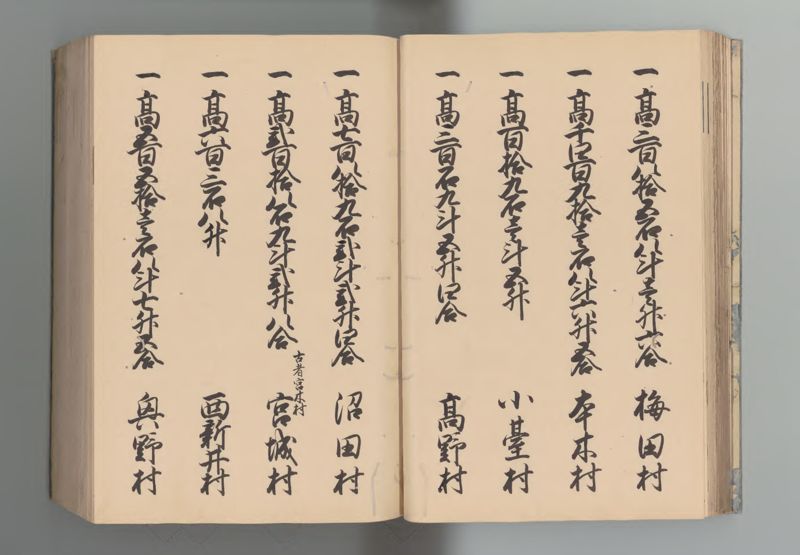 一高三百八拾五石八斗壱升六合 梅田村
一高千四百九拾壱石八斗六升五合 本木村
一高百拾九石壱斗五升 小臺村
一高三百石九斗五升四合 高野村
一高七百八拾九石弐斗弐升四合 沼田村
一高弐百拾八石九斗弐升八合 宮城村
古者宮木村
一高六百三石八升 西新井村
一高五百五拾壱石八斗七升五合 奥野村